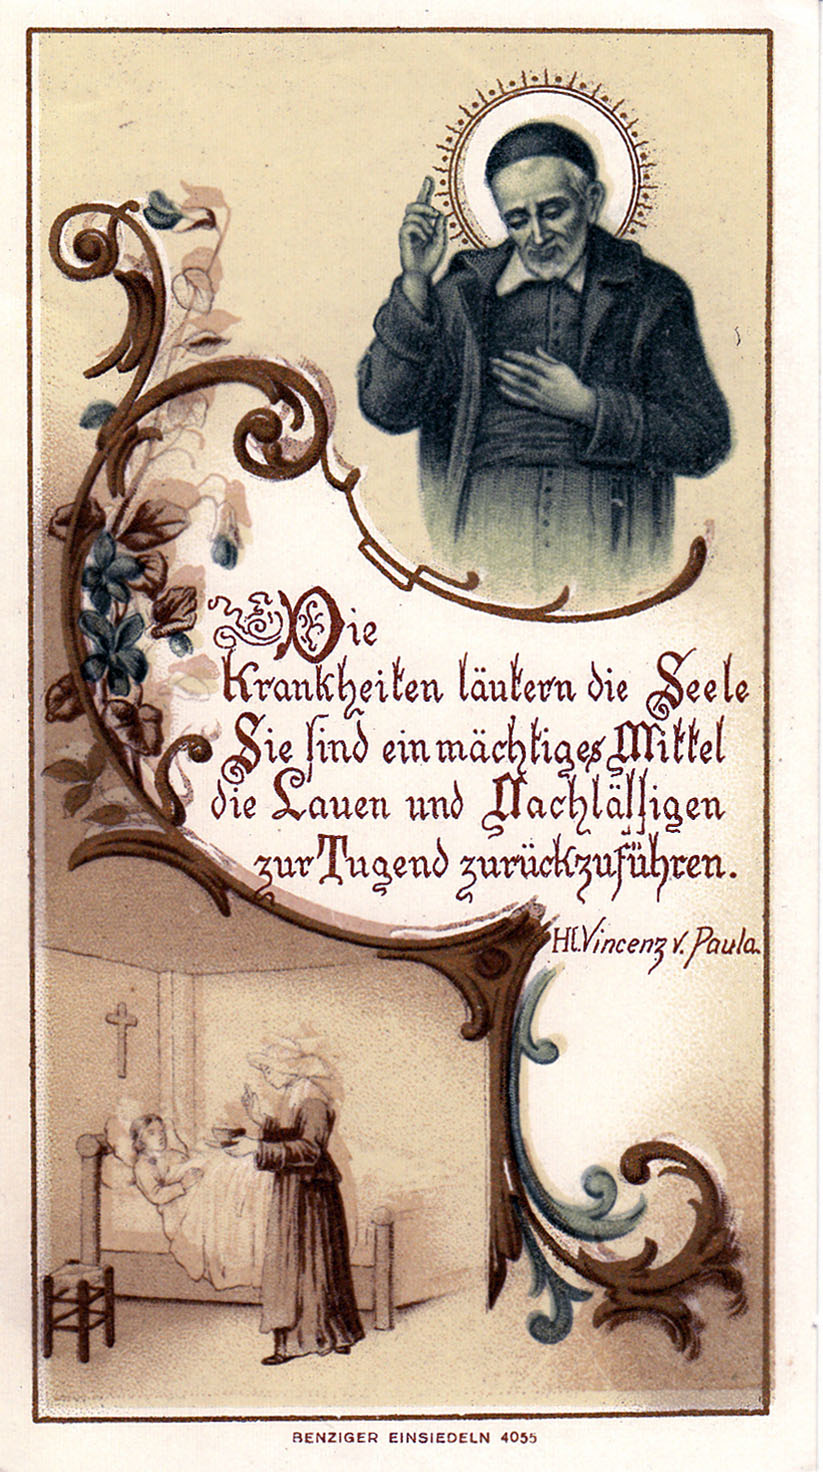 Die
Krankheiten läutern die Seele
Sie sind ein mächtiges Mittel
die Lauen und Nachlässigen
zur Tugend zurückzuführen.
Hl. Vincenz v. Paula.
BENZIGER EINSIEDELN 4055